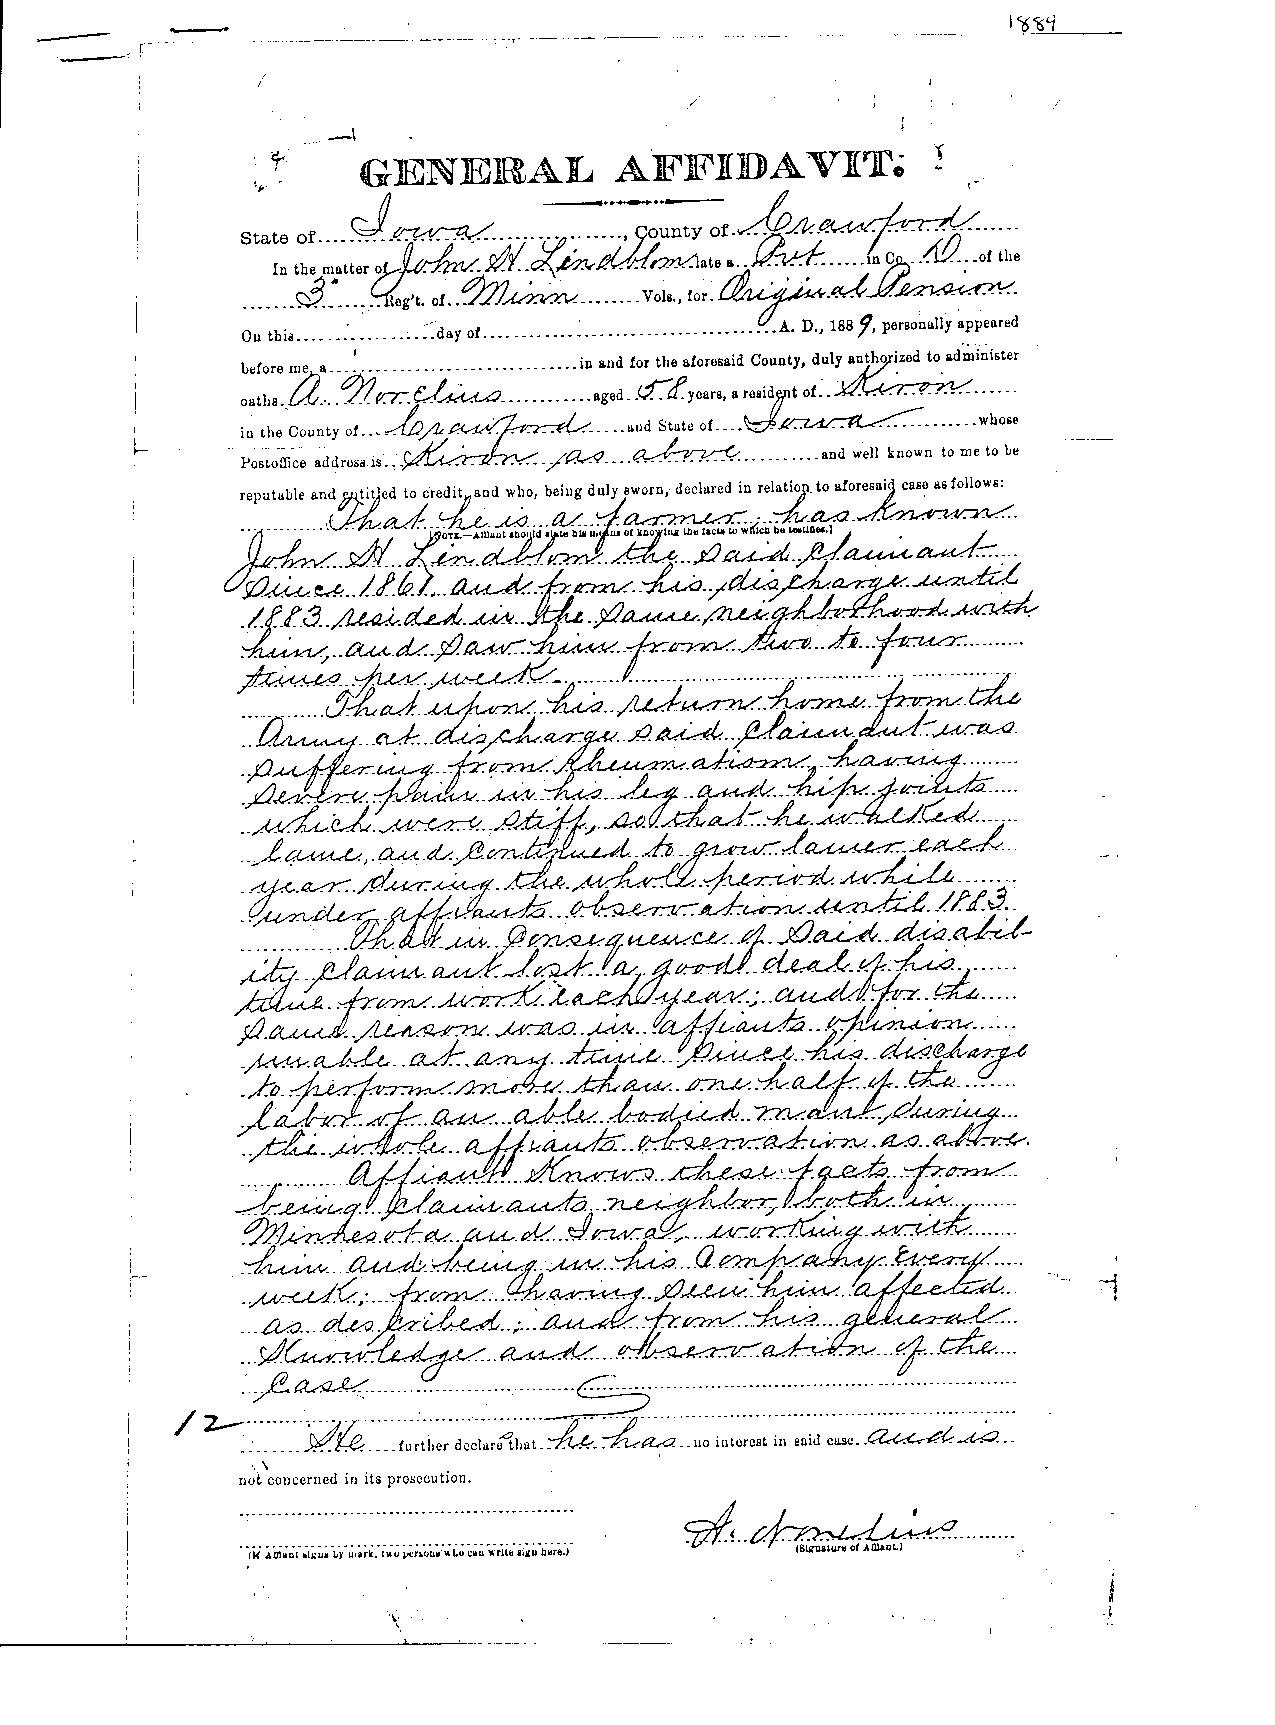 1889
GENERAL AFFIDAVIT.
State of Iowa, County of Crawford
In the matter of John H Lindblom late a Pvt in Co. D of the
3" Reg't. of Minn Vols., for Original Pension
On this day of A. D., 1889, personally appeared
before me, a in and for the aforesaid County, duly authorized to administer
oaths A. Norelius aged 58 years, a resident of Kiron
in the County of Crawford and State of Iowa whose
Postoffice address is Kiron as above and well known to me to be
reputable and entitled to credit, and who, being duly sworn, declared in relation to aforesaid case as follows:
That he is a farmer; has known
[NOTE.—Affiant should state his means of knowing the facts to which he testifies.]
John H Lindblom the said Claimant
since 1861. and from his discharge until
1883 resided in the same neighborhood with
him, and saw him from two to four
times per week.
That upon his return home from the
Army at discharge said Claimant was
suffering from Rheumatism, having
severe pain in his leg and hip joints
which were stiff, so that he walked
lame, and continued to grow lamer each
year during the whole period while
under affiants observation until 1883.
That in consequence of said disabil-
ity claimant lost a good deal of his
time from work each year; and for the
same reason was in affiants opinion
unable at any time since his discharge
to perform more than one half of the
labor of an able bodied man during
the whole affiants observation as above.
Affiant knows these facts from
being Claimants neighbor, both in
Minnesota and Iowa, working with
him and being in his Company every
week; from having seen him affected
as described; and from his general
Knowledge and observation of the
Case
12
He further declare that he has no interest in said case and is
not concerned in its prosecution.
A. Norelius
(If Affiant signs by mark, two persons who can write sign here.)
(Signature of Affiant.)